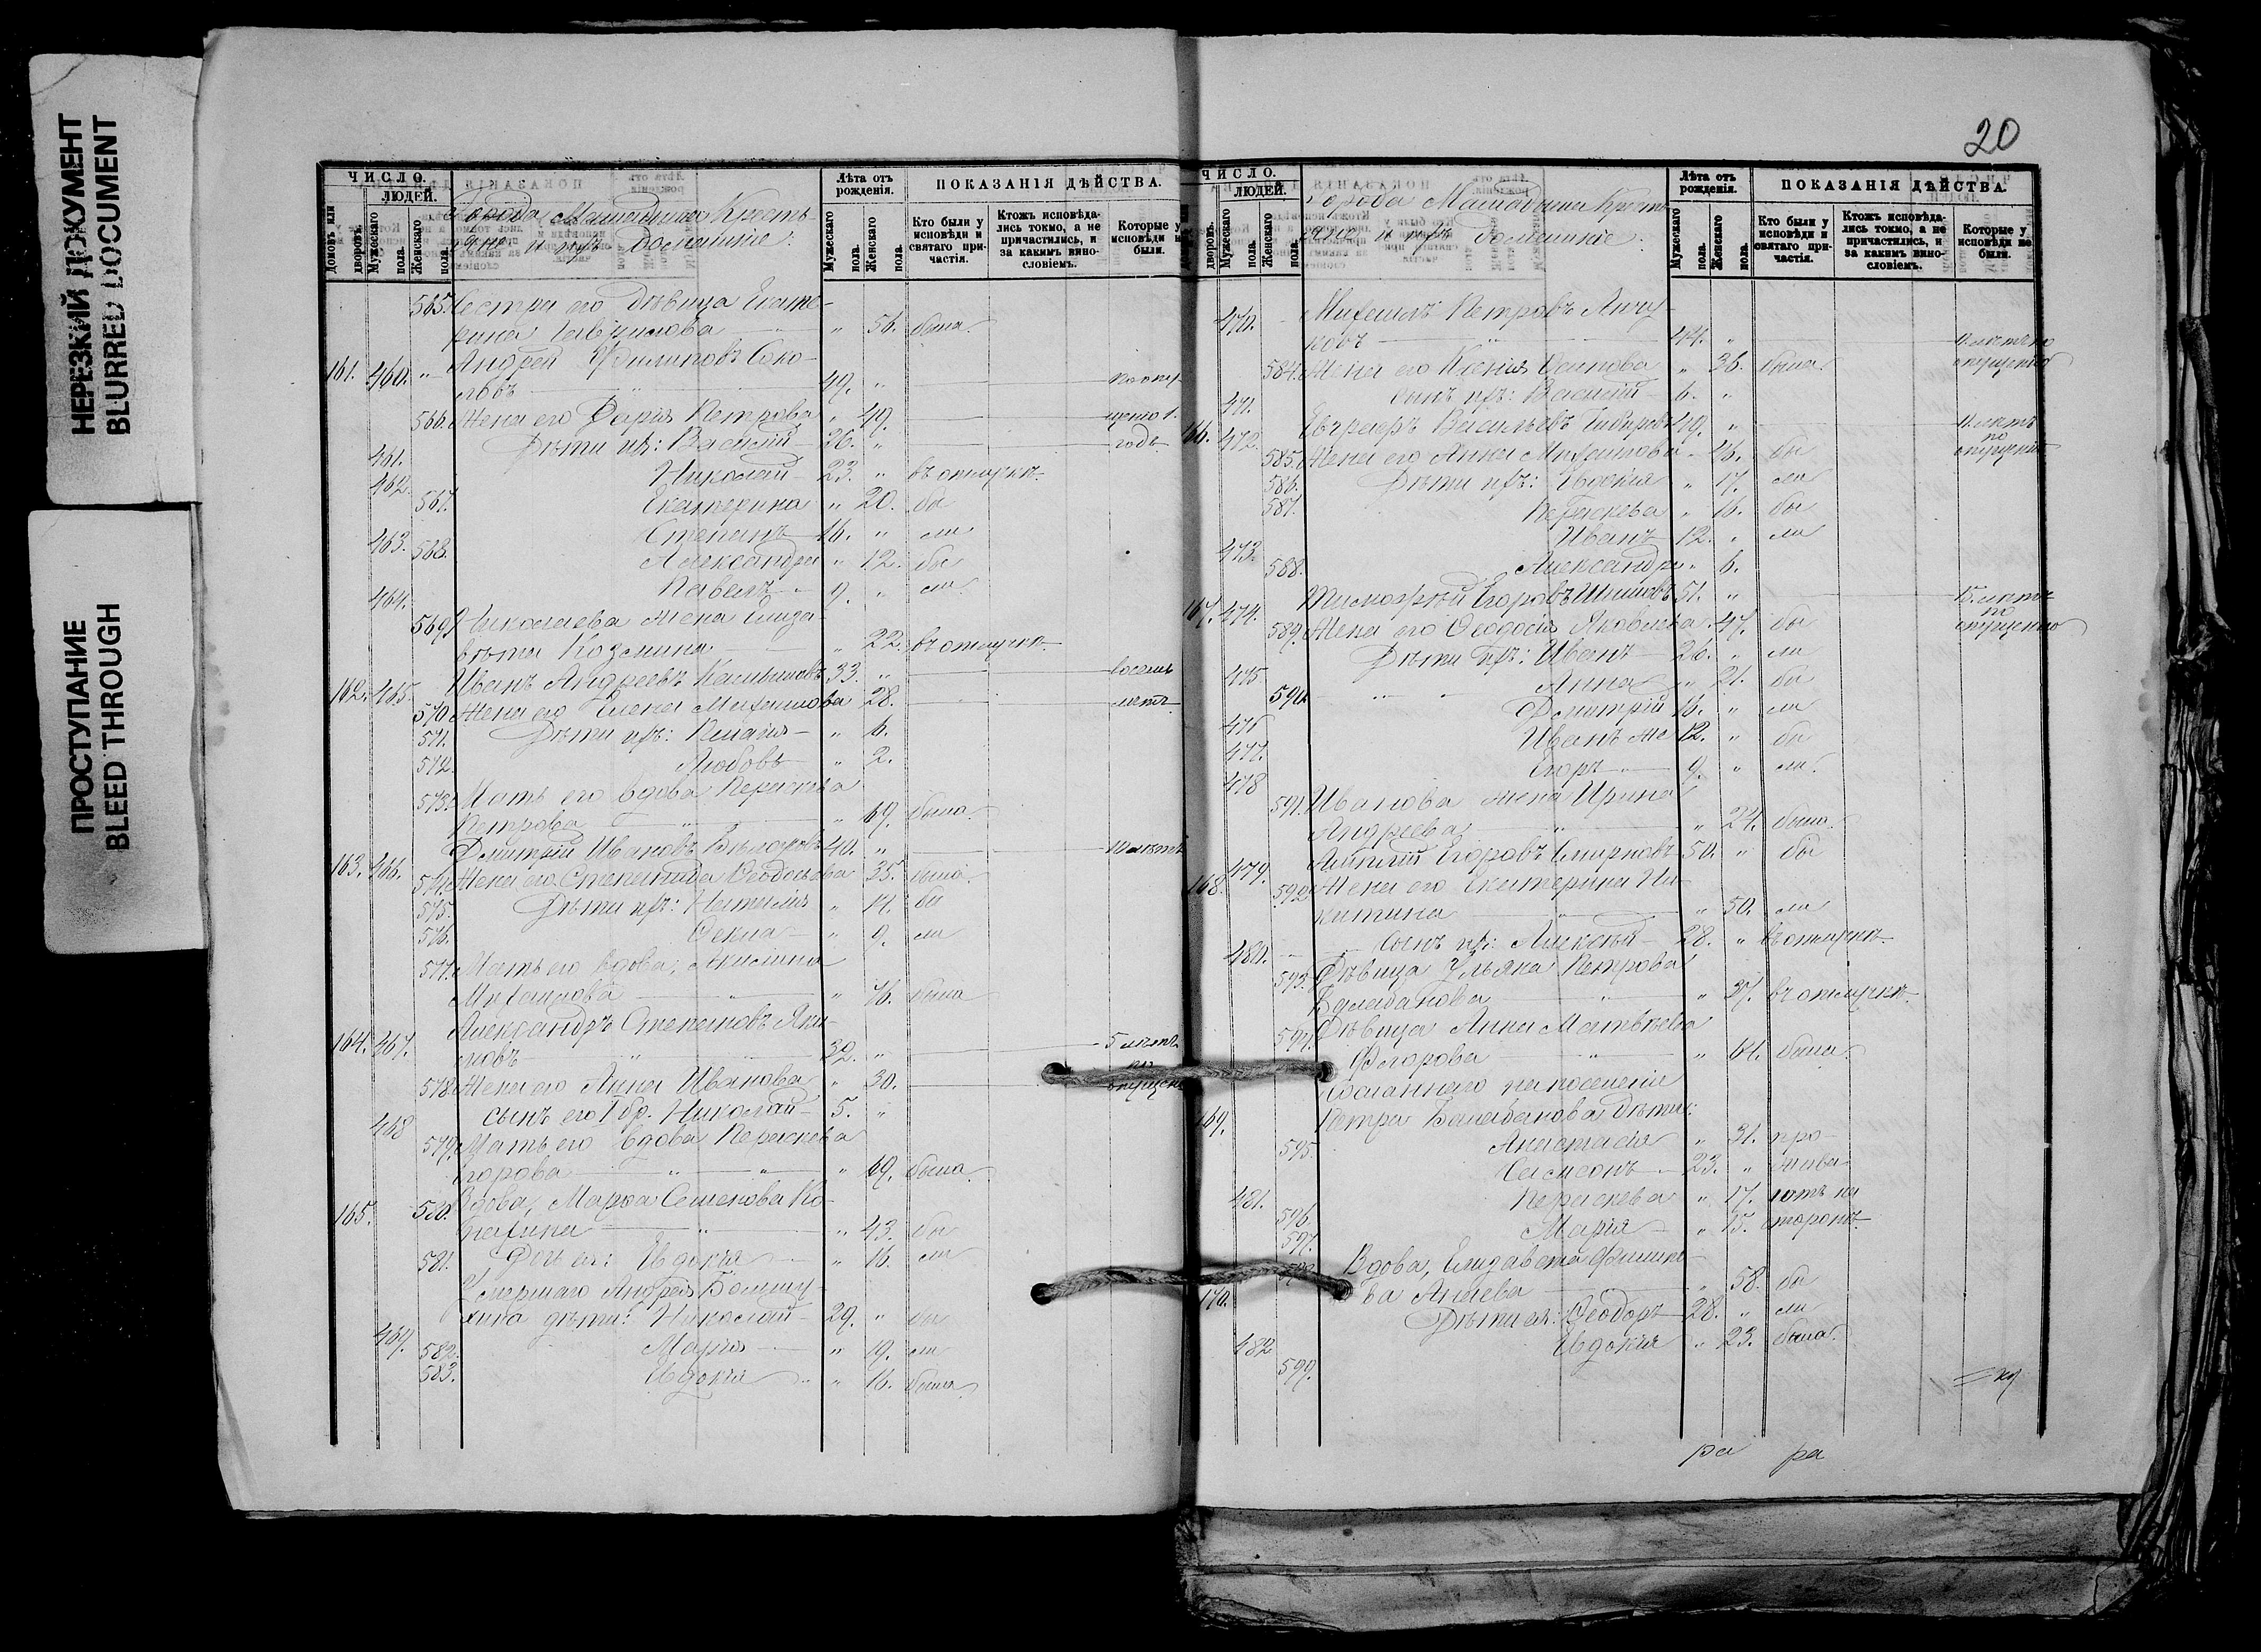 НЕРЕЗКИЙ ДОКУМЕНТ
BLURRED DOCUMENT
ПРОСТУПАНИЕ
BLEED THROUGH
ЧИСЛО.
ЛЮДЕЙ.
Домовъ или дворовъ.
Мужескаго пола.
Женскаго пола.
Города Крестьяне и ихъ домашніе.
Лѣта отъ рожденія.
Мужескаго пола.
Женскаго пола.
ПОКАЗАНІЯ ДѢЙСТВА.
Кто были у исповѣди и святаго причастія.
Ктожъ исповѣдались токмо, а не причастились, и за какимъ винословіемъ.
Которые у исповѣди не были.
565. Сестра его дѣвица Екате-
рина Гаврилова " 56. была.
161. 460. " Андрей Филиповъ Соко-
ловъ 49. " по опу-
566. Жена его Дарія Петрова " 49. щенію 1.
461. Дѣти ихъ: Василій 26. " годъ
462. Николай 23. " въ отлучкѣ.
567. Екатерина " 20. бы
463. Степанъ 16. " ли
568. Александра " 12. бы
464. Павелъ 9. " ли.
569. Николаева жена Елиза-
вета Козмина " 22. въ отлучкѣ.
162. 465. Иванъ Андреевъ 33. " восемь
570. Жена его Елена Михаилова 28. лѣтъ
571. Дѣти ихъ: " 6.
572. Любовь " 2.
573. Мать его вдова Параскева
Петрова " 69. была.
163. 466. Дмитрій Ивановъ 40. " 10 лѣтъ
574. Жена его Степанида Ѳеодосьева 35. была.
575. Дѣти ихъ: Наталія " 14. бы
576. Ѳекла " 9. ли
577. Мать его вдова, Акилина
Михаилова " 76. была
164. 467. Александръ Степановъ Яки-
мовъ 32. " 5 лѣтъ
по
578. Жена его Анна Иванова " 30. опущенію
468 сынъ его 1 бр. Николай 5. "
579. Мать его вдова Параскева
Егорова " 69. была.
165. 580. Вдова, Марѳа Семенова Ко-
" 43. бы
581. Дочь ея: Евдокія " 16. ли
Умершаго Андрея
дѣти: Николай 29. " бы
469. 582. Марія " 19. ли
583. Евдокія " 16. была.
20
ЧИСЛО.
ЛЮДЕЙ.
дворовъ.
Мужескаго пола.
Женскаго пола.
Города Крестьяне и ихъ домашніе.
Лѣта отъ рожденія.
Мужескаго пола.
Женскаго пола.
ПОКАЗАНІЯ ДѢЙСТВА.
Кто были у исповѣди и святаго причастія.
Ктожъ исповѣдались токмо, а не причастились, и за какимъ винословіемъ.
Которые у исповѣди не были.
470. Михаилъ Петровъ
ковъ 44. " лѣтъ по
584. Жена его Ксенія Осипова " 36. была опущенію
471. сынъ ихъ: Василій 6. "
166. 472. Евграфъ Васильевъ 49. " лѣтъ
по
585. Жена его Анна Михаилова 46. бы опущенію
586. Дѣти ихъ: Евдокія " 17. ли
587. Параскева " 16. бы
473. Иванъ 12. " ли
588. Александра " 6.
167. 474. Тимоѳей Егоровъ Шишовъ 51. " 15 лѣтъ
по
589. Жена его Ѳеодосія Яковлева 47. бы опущенію
475 Дѣти ихъ: Иванъ 26. " ли
590. Анна " 21. бы
476 Дмитрій 16. " ли
477. Иванъ же 12. " бы
478 Егоръ 9. " ли.
591. Иванова жена Ирина
Андреева " 24. была.
168. 479. Егоровъ Смирновъ 50. " бы
592. Жена его Екатерина Ни-
китина " 50. ли
480. сынъ ихъ: Алексѣй 28. " въ отлучкѣ.
593. Дѣвица Ульяна Петрова
Балабанова " 37. въ отлучкѣ.
594. Дѣвица Анна Матвѣева
Фларова " 61. была.
Сосланнаго на поселеніе
169. Петра Балабанова дѣти:
595. Анастасія " 31. про-
481. Самсонъ 23. " жива-
596. Параскева " 17. ютъ на
597. Марія " 15. сторонѣ.
170. 598. Вдова, Елизавета Филипо-
ва " 58. бы
482 Дѣти ея: Ѳеодоръ 28. " ли
599. Евдокія " 23. была.
ра ра